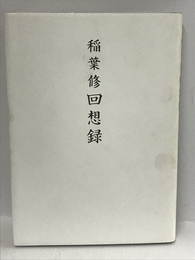 稲葉修回想録